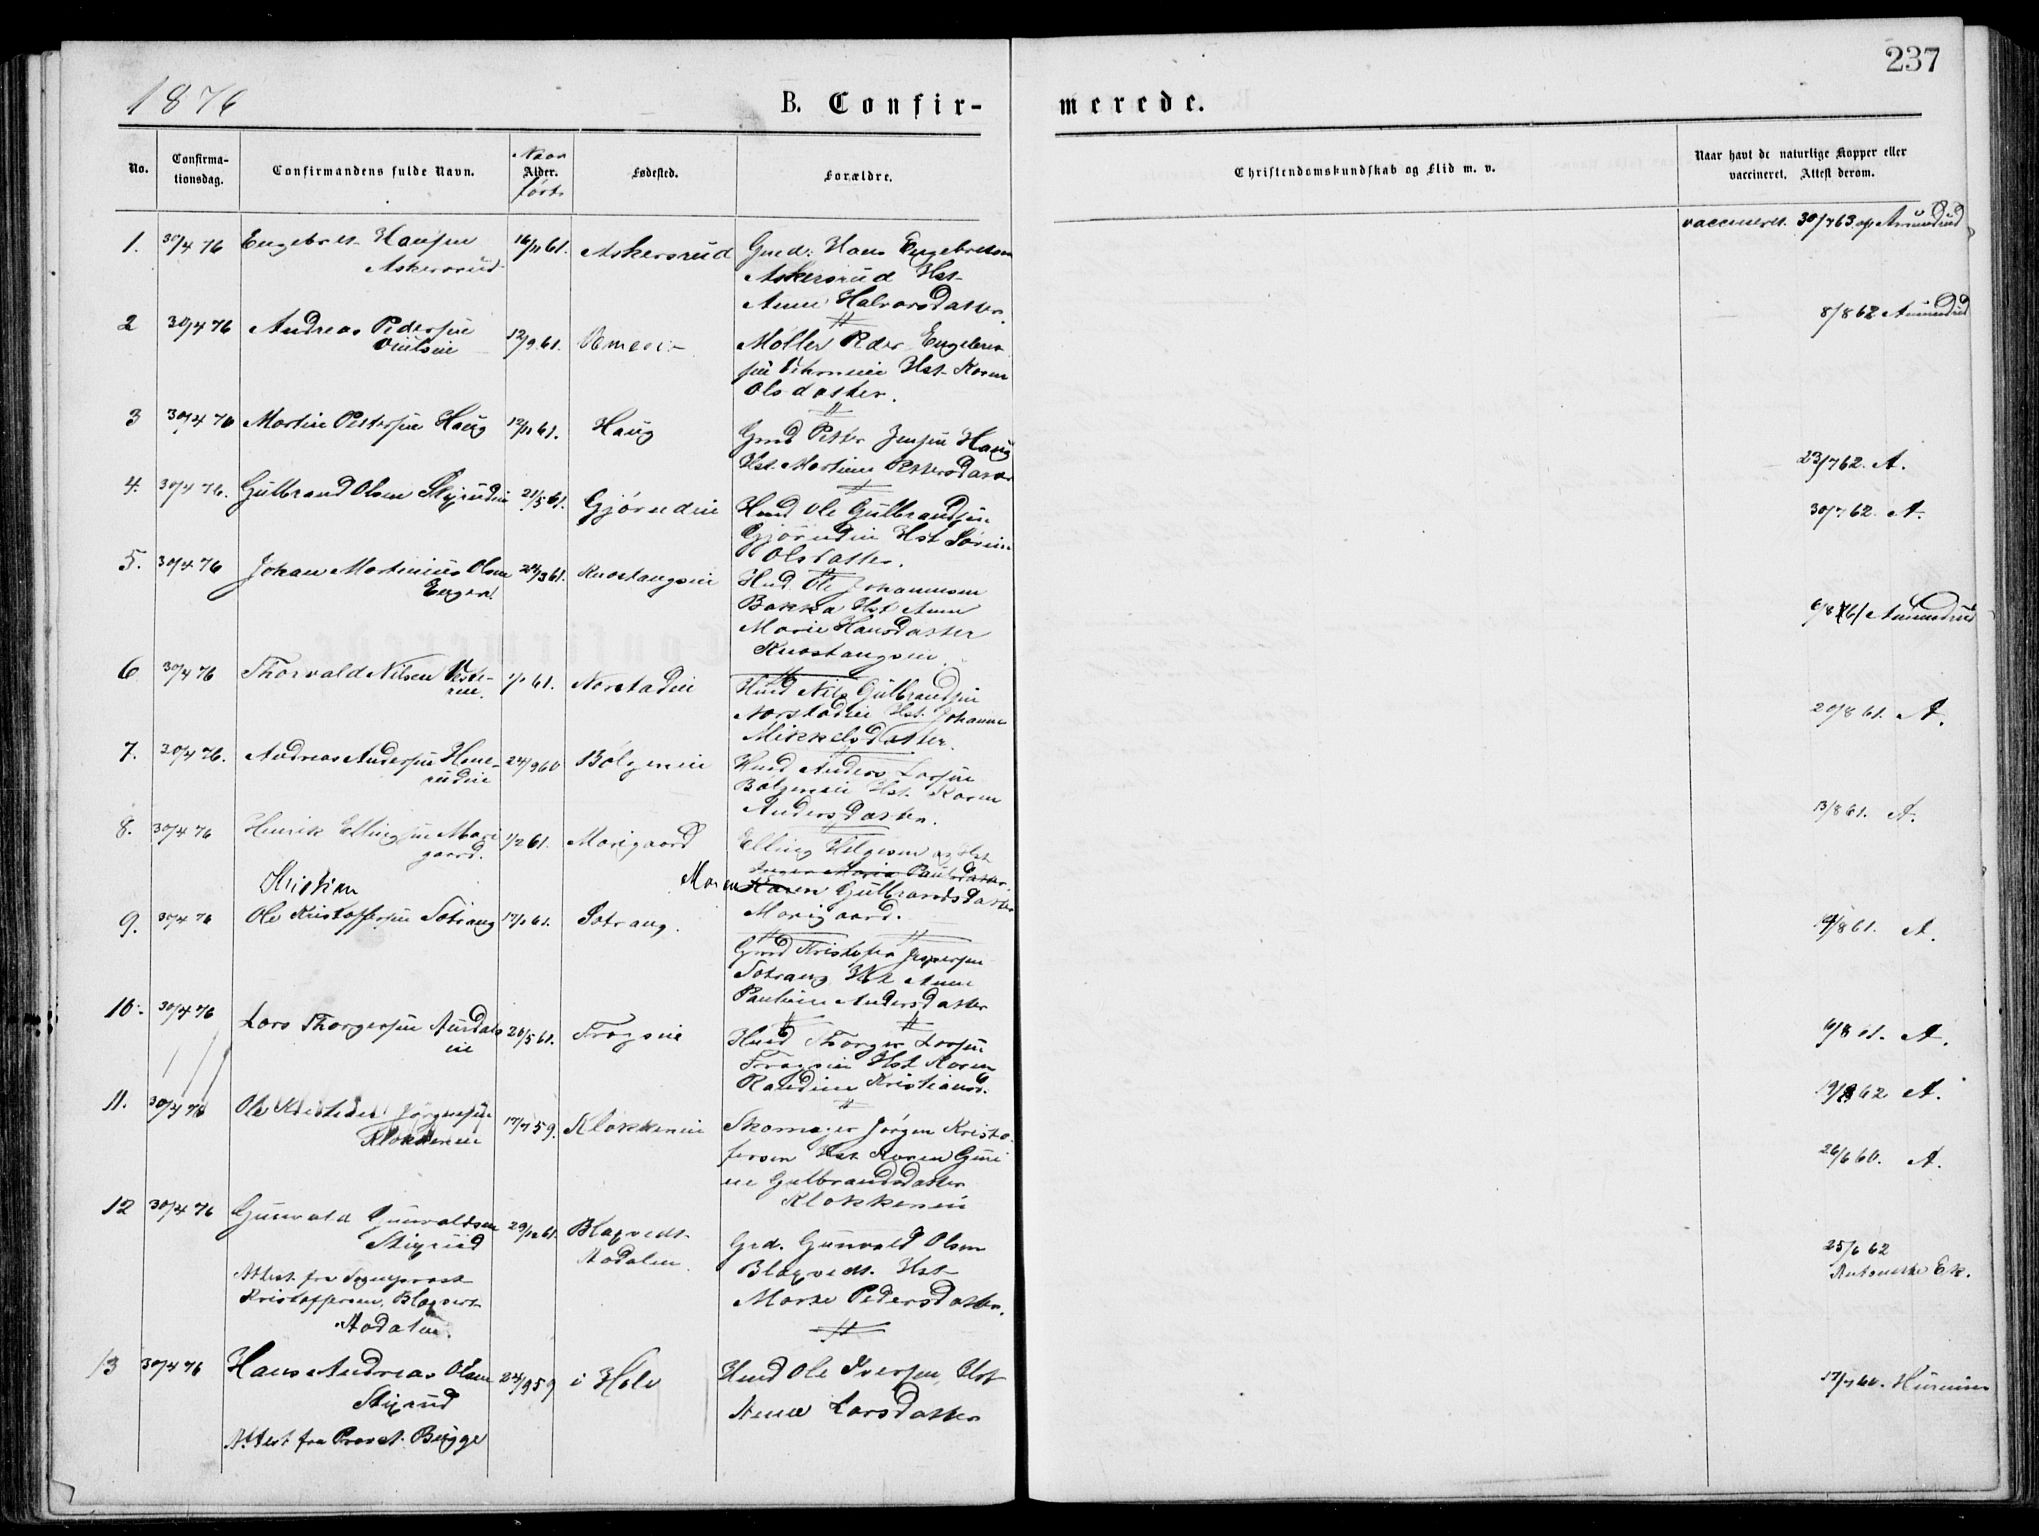 237
1876
B. Confir-
merede.
No.
Confirma-
tionsdag.
Confirmandens fulde Navn.
Naar
Alder.
født
Fødested.
Forældre.
Christendomskundskab og Flid m. v.
Naar havt de naturlige Kopper eller
vaccineret. Attest derom.
1. 30/4 76 Engebret Hansen 16/11 61. Askersrud Gmd. Hans Engebretsen
Askersrud
Askersrud Hst
Anne Halvorsdatter.
vaccineret. 30/7 63 af Amundrud
2 30/4 76 Andreas Pedersen 12/9 61. Møller Peder
Olsdatter.
8/8 62 Amundrud
3 30/4 76 Martin Pettersen Haug 12/11 61. Haug Gmd Petter Jensen Haug
Hst. Martine Pettersdatter
23/7 62. A.
4. 30/4 76. Gulbrand Olsen 21/5 61. Gjørudeie Hmd Ole Gulbrandsen
Gjørudeie Hst
Olsdatter.
30/7 62. A.
5. 30/4 76 Johan Martinius Olsen 24/3 61. Knostangseie Hmd Ole Johannesen
Enger
Bakka Hst Anne
Marie Hansdatter
Knostangseie
6/8 61 Amundrud
6 30/4 76 Thorvald Nilsen 1/1 61. Norstadeie Hmd Nils Gulbrandsen
Norstadeie Hst. Johanne
Mikkelsdatter.
20/8 61. A.
7. 30/4 76. Andreas Andersen 24/9 60 Bølgeneie Hmd Anders Larsen
Bølgeneie Hst Karen
Andersdatter.
13/8 61. A.
8. 30/4 76 Henrik Ellingsen Mori 1/2 61. Morigaard Elling Helgesen og Hst
gaard.
Inger Maria Paulsdatter
Maren Karen Gulbrandsdatter
Morigaard.
Kristian
9. 30/4 76 Ole Kristoffersen Sotrang 17/1 61. Sotrang. Gmd Kristofer Jespersen
Sotrang Hst Anne
Pauline Andersdatter
/8 61. A.
10. 30/4 76 Lars Thorgersen Aurdals 20/5 61. Frogseie Hmd Thorger Larsen
eie
Frogseie Hst Karen
Randine Kristiansd.
6/8 61. A.
11. 30/4 76 Ole Jørgensen 17/7 59. Klokkereie Skomager Jørgen Kristo-
Klokkereie
fersen Hst Karen Guri
ne Gulbrandsdatter
Klokkereie
62 A.
26/6 60. A.
12 30/4 76 Gunvald Gunvaldsen 29/12 61. Blaqvedt Grd. Gunvald Olsen
Stixrud
Aadalen.
Blaqvedt. Hst
Marte Pedersdatter.
Attest fra Sogneprest
Kristoffersen, Blaqvedt
Aadalen.
25/6 62
Antonette Ek.
13 30/4 76 Hans Andreas Olsen 24/9 59 i Hole Hmd Ole Iversen, Hst
Stixrud
Anne Larsdatter
Attest fra Provst Bugge
17/7 60.